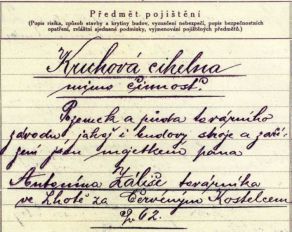 Předmět pojištění
(Popis risika, způsob stavby a krytiny budov, vyznačení nebezpečí, popis bezpečnostních
opatření, zvláštní sjednané podmínky, vyjmenování pojištěných předmětů.)
Kruhová cihelna
mimo činnost.
Pozemek a půda továrního
závodu jakož i budovy stroje a zaří-
zení jsou majetkem pana
Antonína Záliše továrníka
ve Lhotě za Červeným Kostelcem
čp 62.